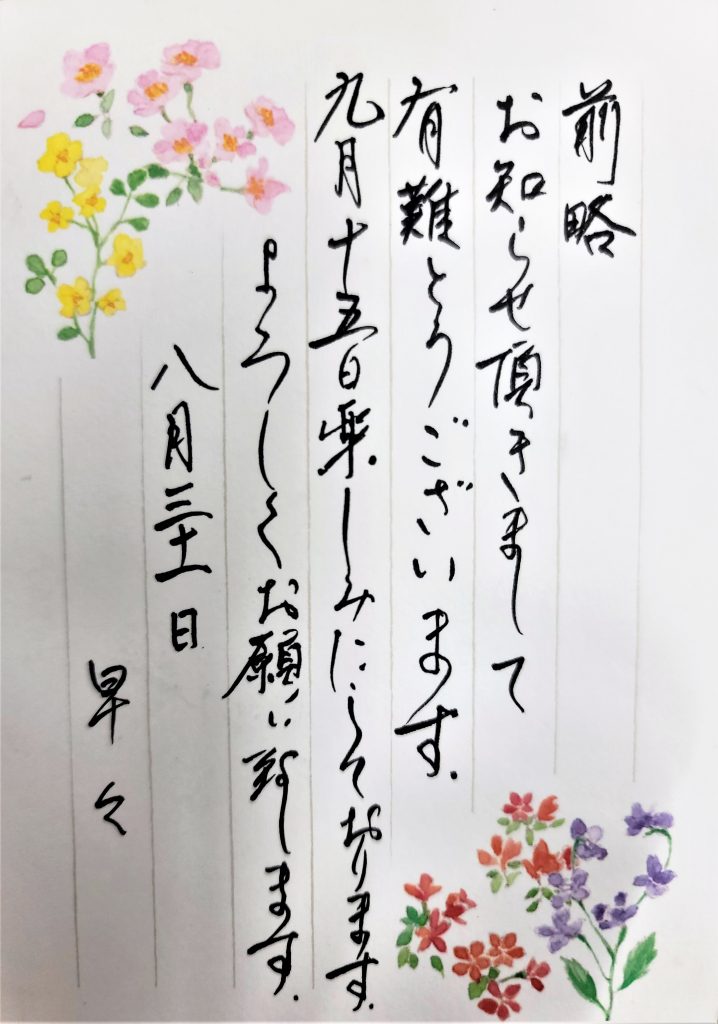 前略
お知らせ頂きまして
有難とうございます.
九月十五日楽しみにしております.
よろしくお願い致します.
八月三十一日
早々